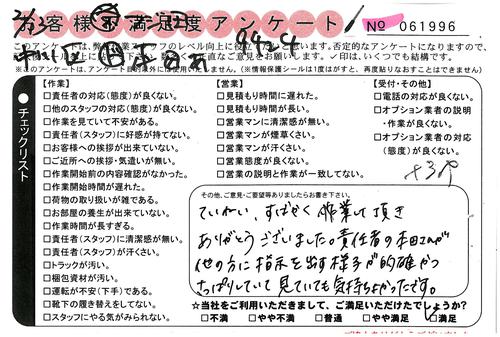 お客様不満足度アンケート
No 061996
※このアンケートは、アンケート目的以外には使用しません。※(情報保護シールは1度はがすと、再度貼りなおすことはできません)
チェックリスト
【作業】
□責任者の対応(態度)が良くない。
□他のスタッフの対応(態度)が良くない。
□作業を見ていて不安がある。
□責任者(スタッフ)に好感が持てない。
□お客様への挨拶が出来ていない。
□ご近所への挨拶・気遣いが無い。
□作業開始前の内容確認がなかった。
□作業開始時間が遅れた。
□荷物の取り扱いが雑である。
□お部屋の養生が出来ていない。
□作業時間が長すぎる。
□責任者(スタッフ)に清潔感が無い。
□責任者(スタッフ)が汗くさい。
□トラックが汚い。
□梱包資材が汚い。
□運転が不安(下手)である。
□靴下の履き替えをしてない。
□スタッフにやる気がみられない。
【営業】
□見積もり時間に遅れた。
□見積もり時間が長い。
□営業マンに清潔感が無い。
□営業マンが煙草くさい。
□営業マンが汗くさい。
□営業態度が良くない。
□営業の説明と作業が一致してない。
【受付・その他】
□電話の対応が良くない。
□オプション業者の説明
・作業が良くない。
□オプション業者の対応
(態度)が良くない。
その他、ご意見・ご要望等ありましたらお書き下さい。
ていねい、すばやく作業して頂き
ありがとうございました。責任者の本田さんが
他の方に指示を出す様子が的確かつ
さっぱりしていて見ていても気持ちよかったです。
☆当社をご利用いただきまして、ご満足いただけたでしょうか?
□不満 □やや不満 □普通 □やや満足 □満足